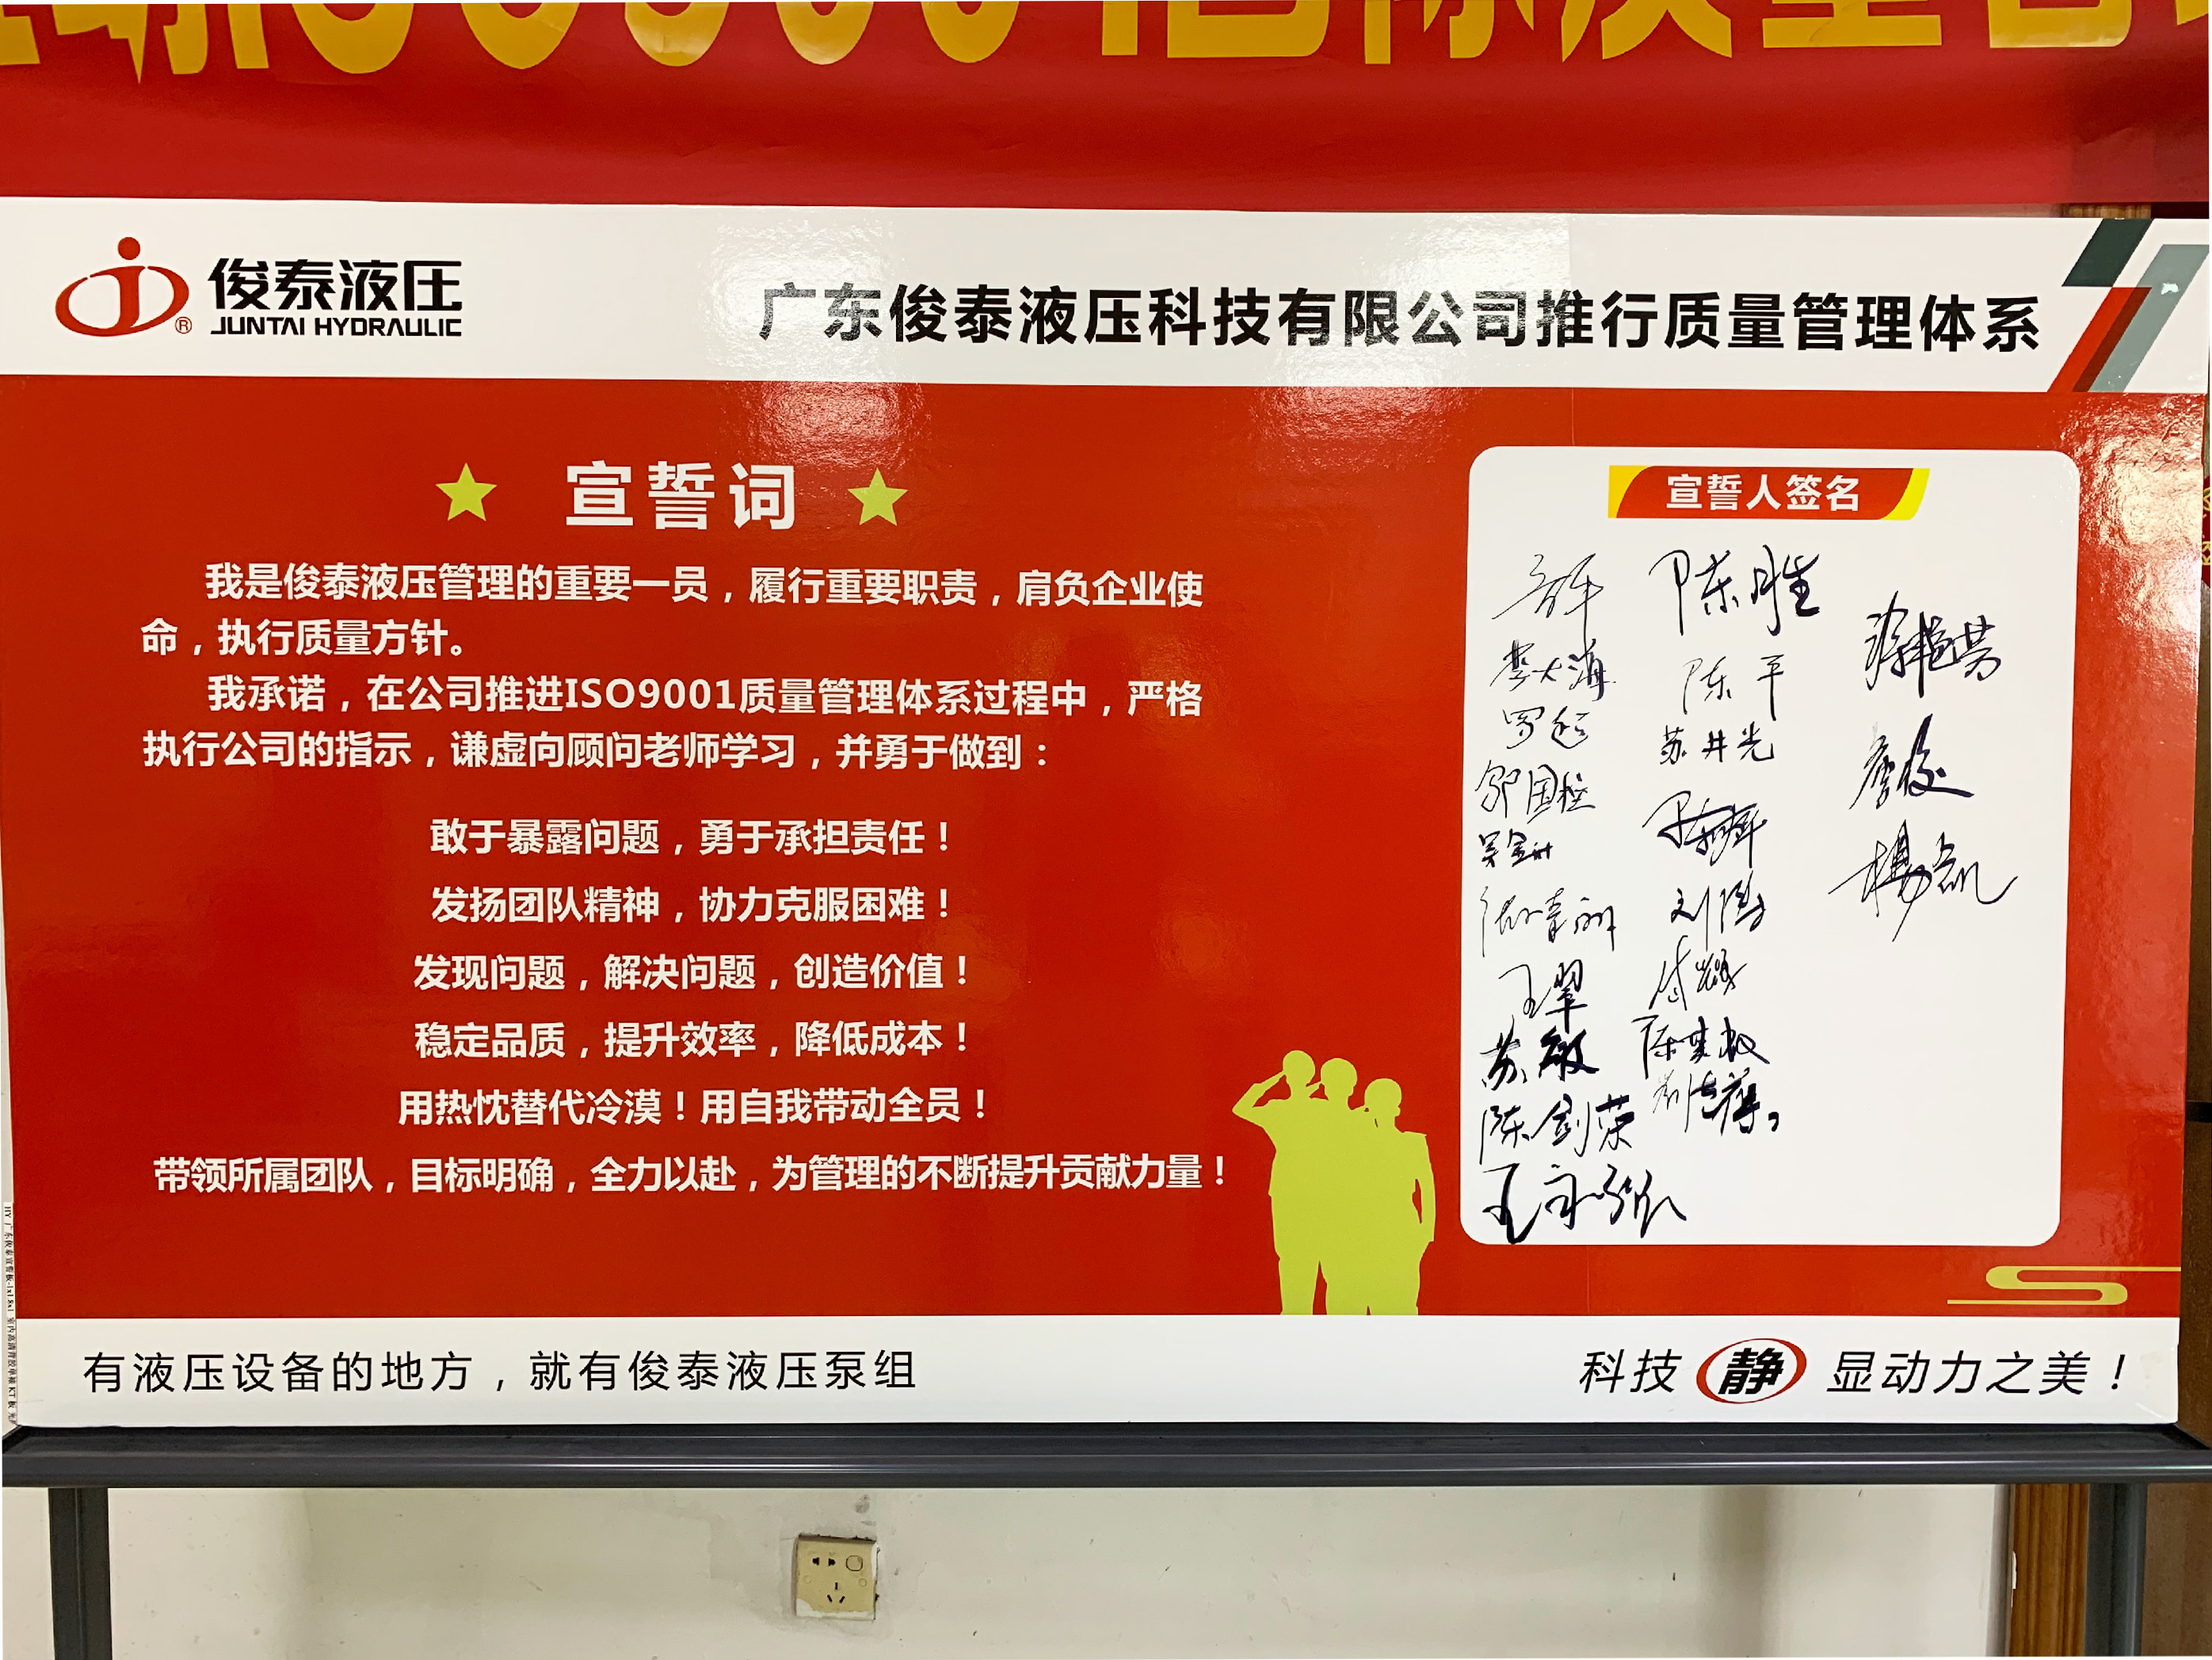 俊泰液压
JUNTAI HYDRAULIC
®
广东俊泰液压科技有限公司推行质量管理体系
宣誓词
我是俊泰液压管理的重要一员，履行重要职责，肩负企业使
命，执行质量方针。
我承诺，在公司推进ISO9001质量管理体系过程中，严格
执行公司的指示，谦虚向顾问老师学习，并勇于做到：
敢于暴露问题，勇于承担责任！
发扬团队精神，协力克服困难！
发现问题，解决问题，创造价值！
稳定品质，提升效率，降低成本！
用热忱替代冷漠！用自我带动全员！
带领所属团队，目标明确，全力以赴，为管理的不断提升贡献力量！
宣誓人签名
陈胜
李大海
陈平
苏井光
邹国
刘
王翠
苏敏
陈剑荣
王永
杨凯
有液压设备的地方，就有俊泰液压泵组
科技 静 显动力之美！